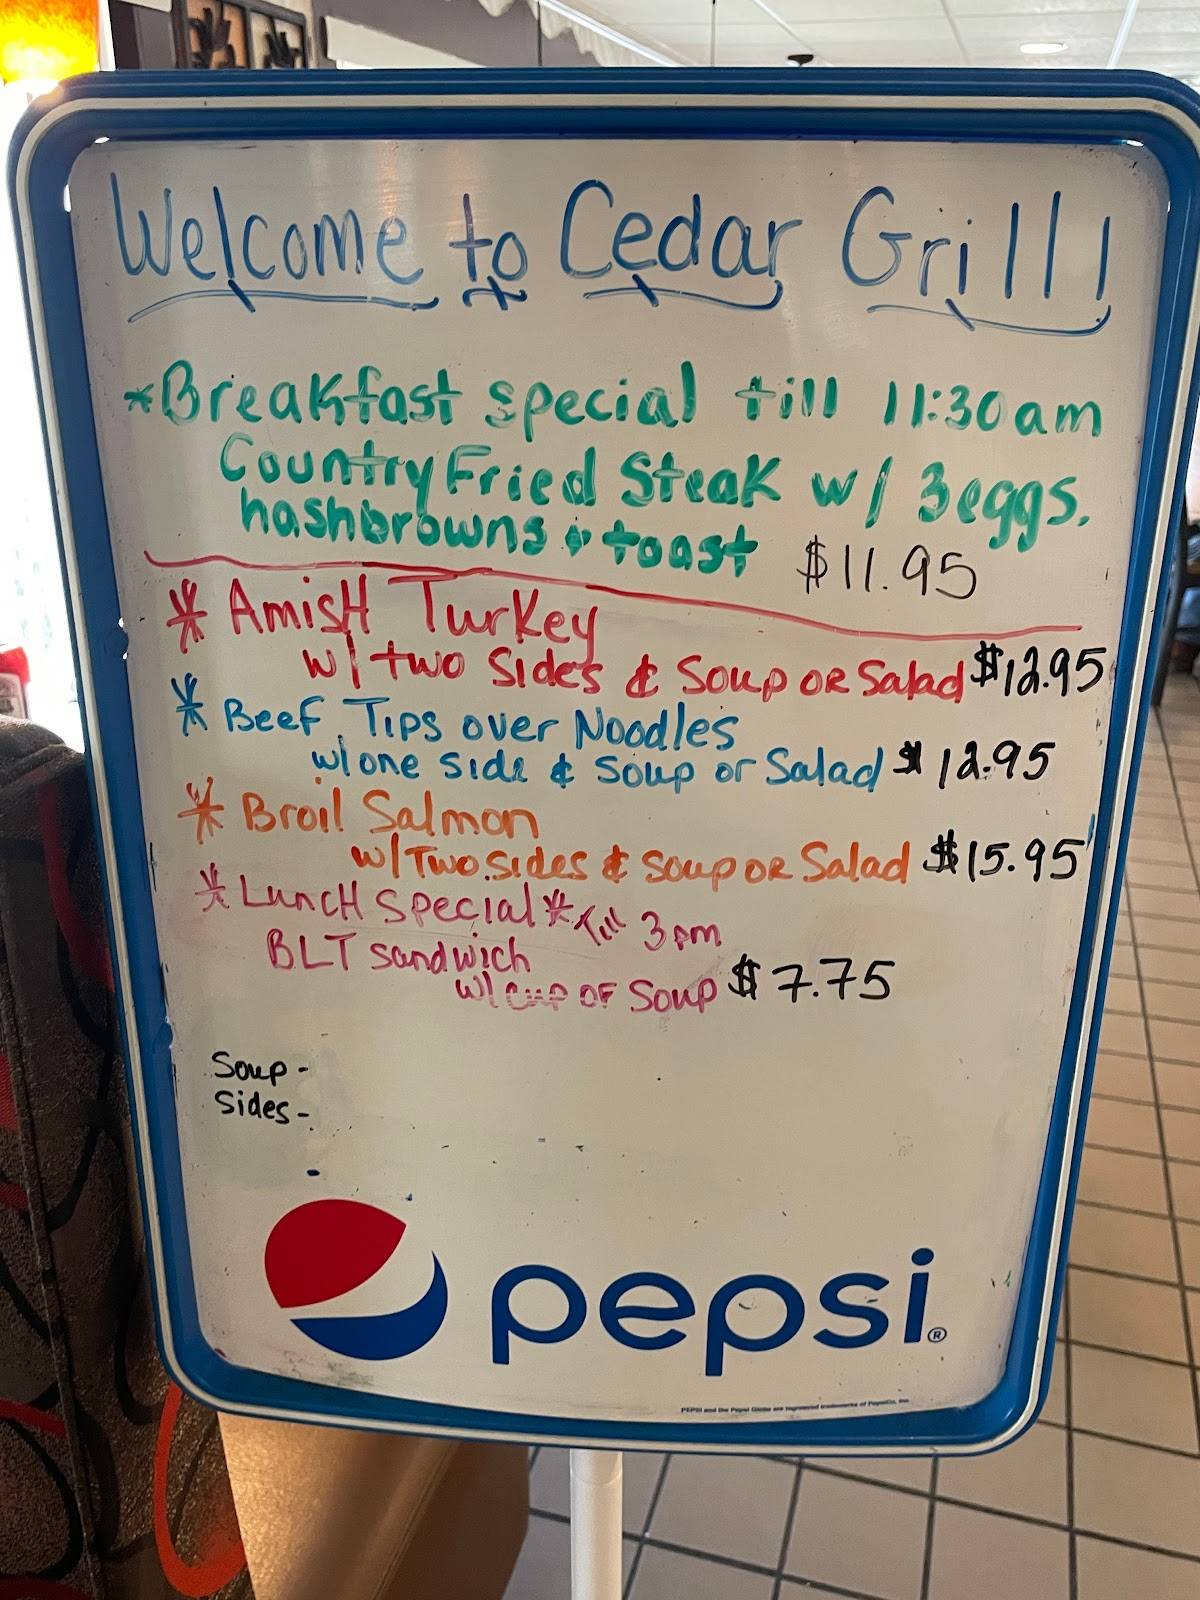 Welcome to Cedar Grill!
*Breakfast special till 11:30am
Country Fried Steak w/ 3 eggs.
hashbrowns & toast $11.95
* AmisH Turkey
w/ two Sides & Soup or Salad $12.95
* Beef Tips over Noodles
w/ one side & Soup or Salad $12.95
* Broil Salmon
w/ Two sides & Soup or Salad $15.95
* LuncH Special * Till 3pm
BLT Sandwich
w/ cup of Soup $7.75
Soup -
Sides -
pepsi®
PEPSI and the Pepsi Globe are registered trademarks of PepsiCo, Inc.